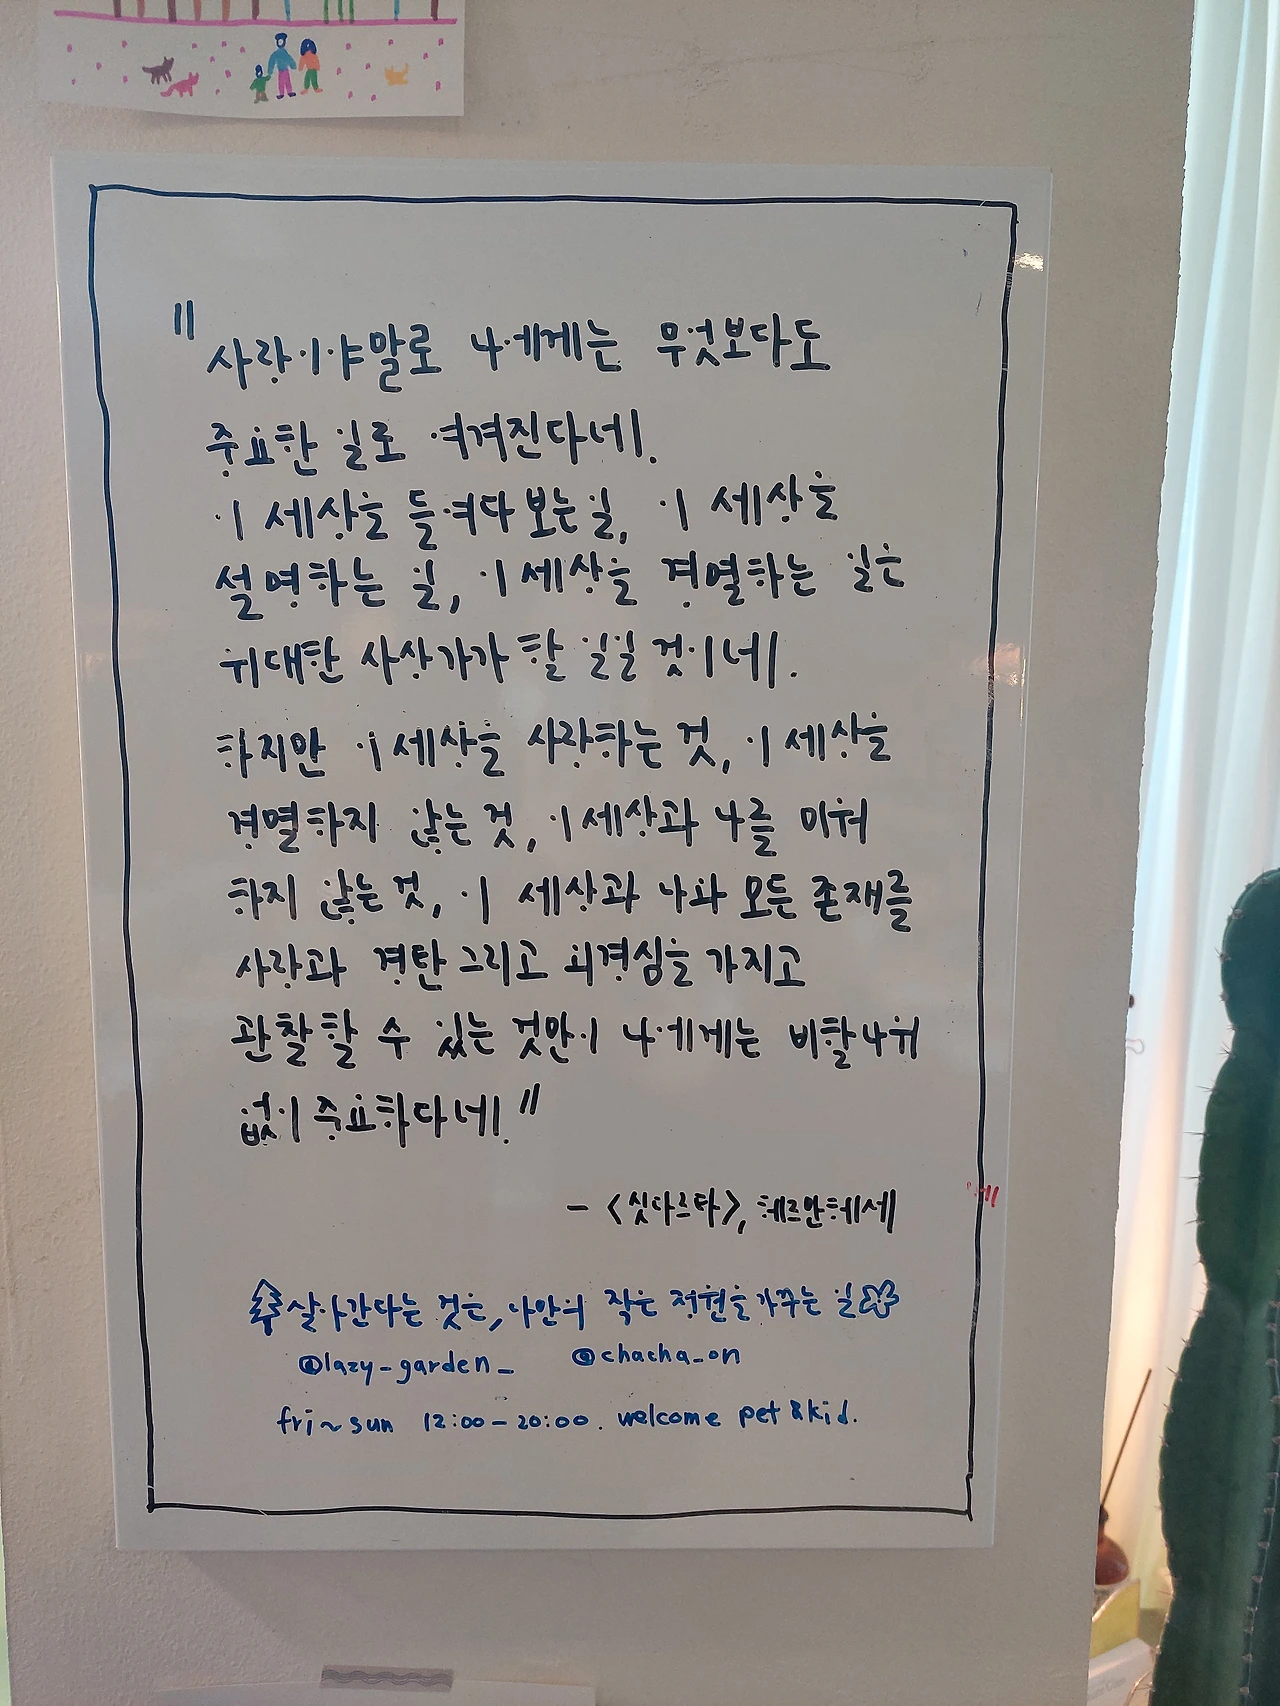 "사랑이야말로 나에게는 무엇보다도
중요한 일로 여겨진다네.
이 세상을 들여다 보는 일, 이 세상을
설명하는 일, 이 세상을 경멸하는 일은
위대한 사상가가 할 일일 것이네.
하지만 이 세상을 사랑하는 것, 이 세상을
경멸하지 않는 것, 이 세상과 나를 미워
하지 않는 것, 이 세상과 나와 모든 존재를
사랑과 경탄 그리고 외경심을 가지고
관찰할 수 있는 것만이 나에게는 비할 나위
없이 중요하다네."
- <싯다르타>, 헤르만 헤세
살아간다는 것은, 나만의 작은 정원을 가꾸는 일
@lazy_garden_ @chacha_on
fri~sun 12:00-20:00. welcome pet & kid.